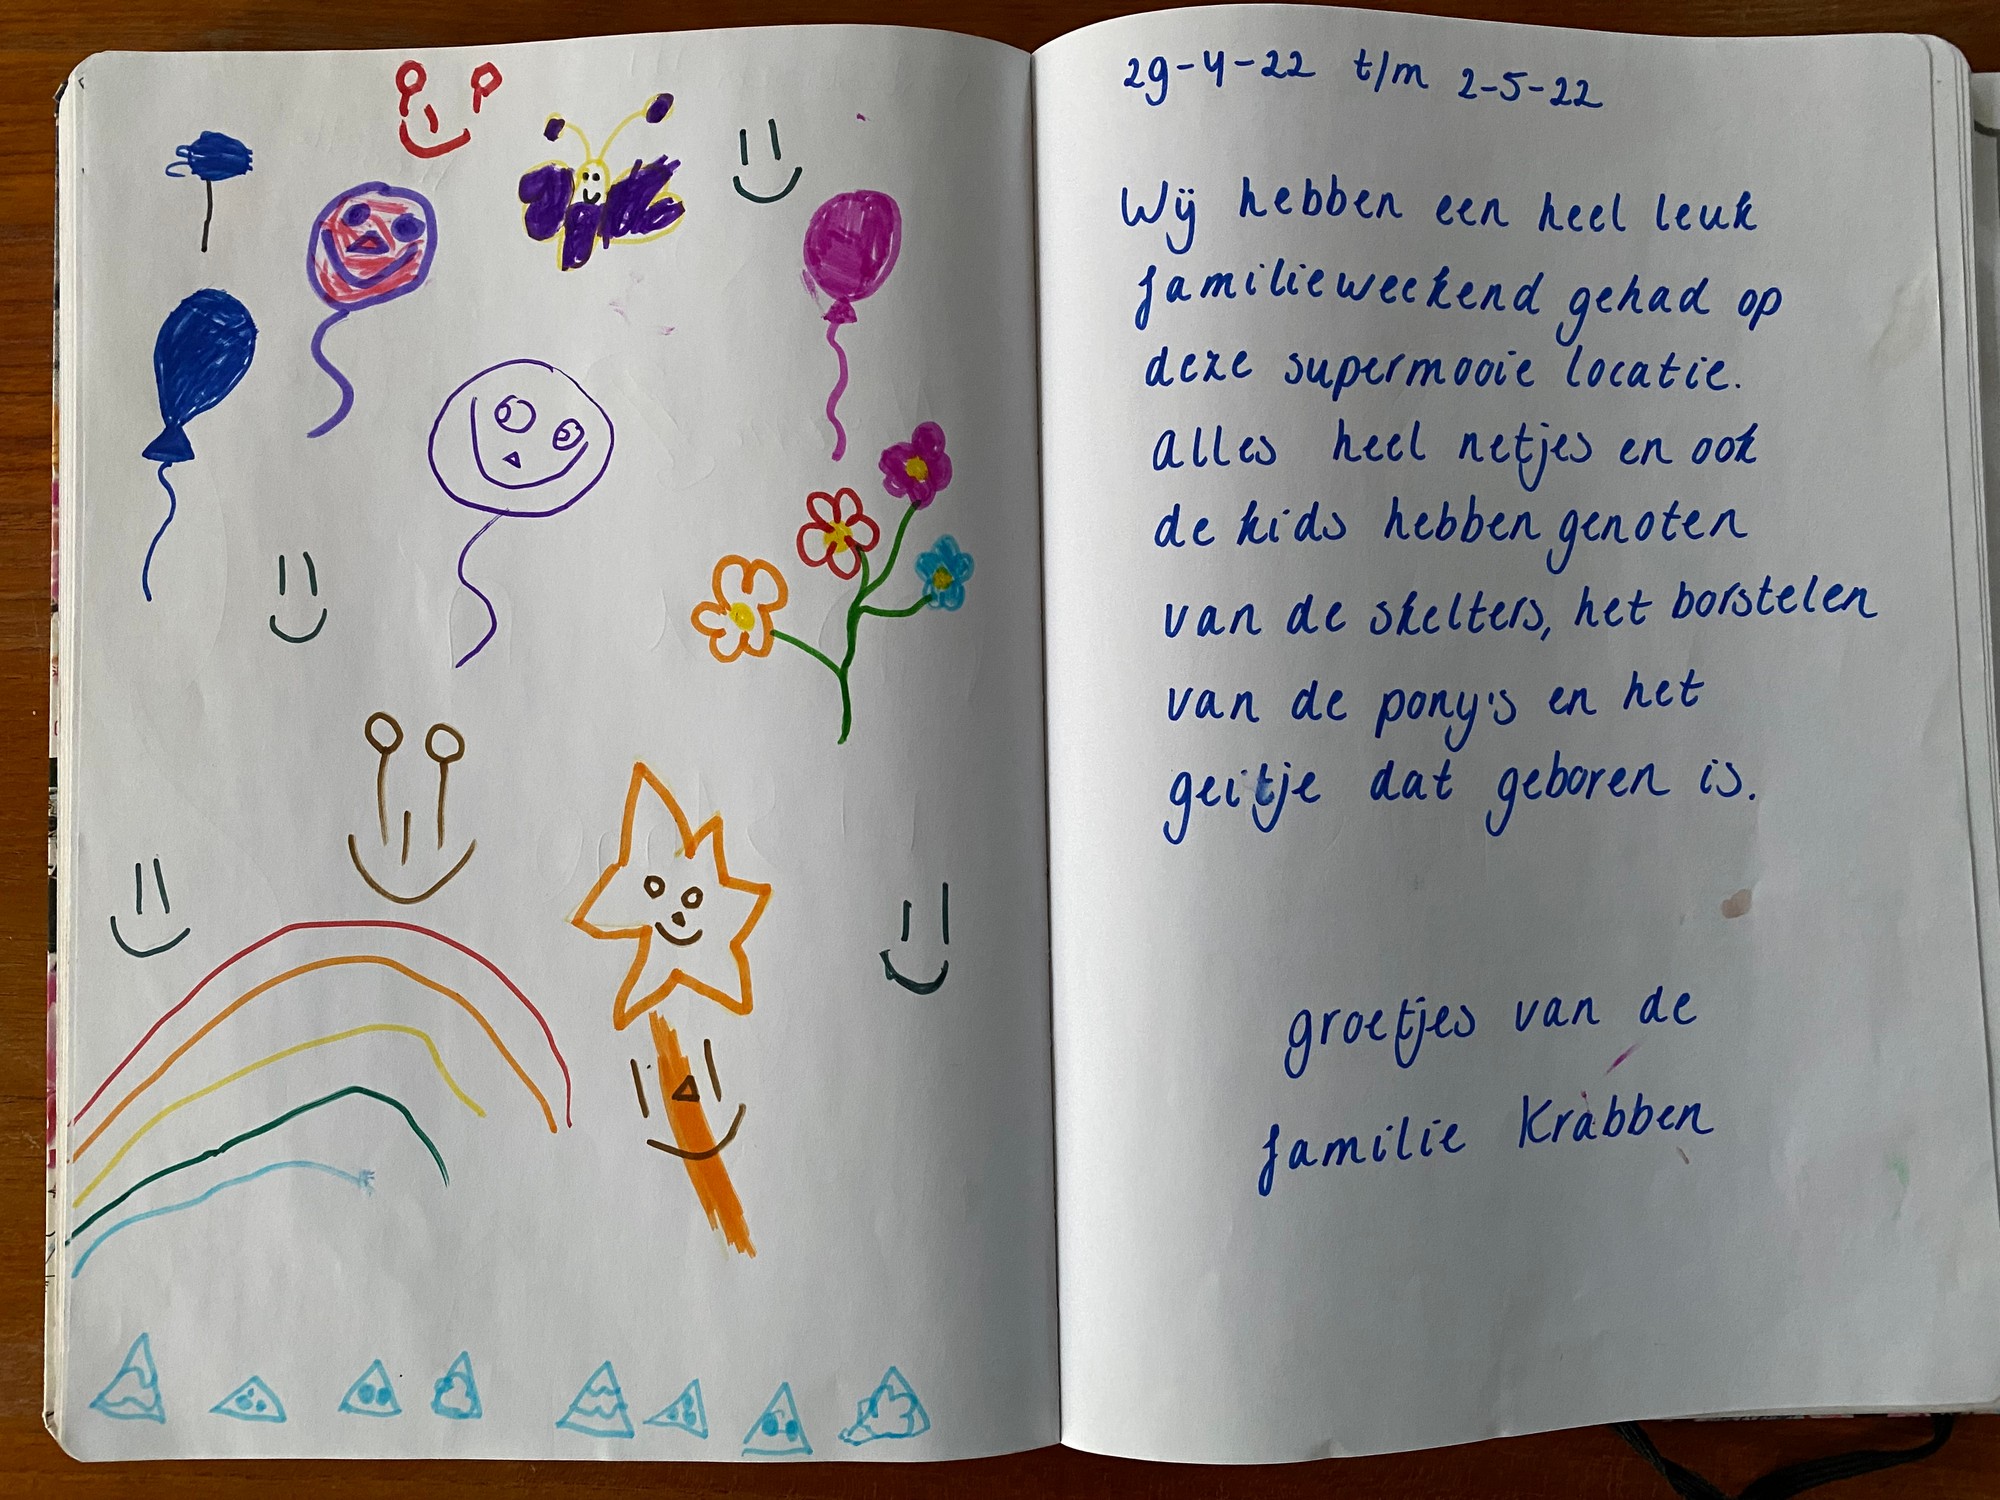 29-4-22 t/m 2-5-22
Wij hebben een heel leuk
familieweekend gehad op
deze supermooie locatie.
Alles heel netjes en ook
de kids hebben genoten
van de skelters, het borstelen
van de pony's en het
geitje dat geboren is.
groetjes van de
familie Krabben